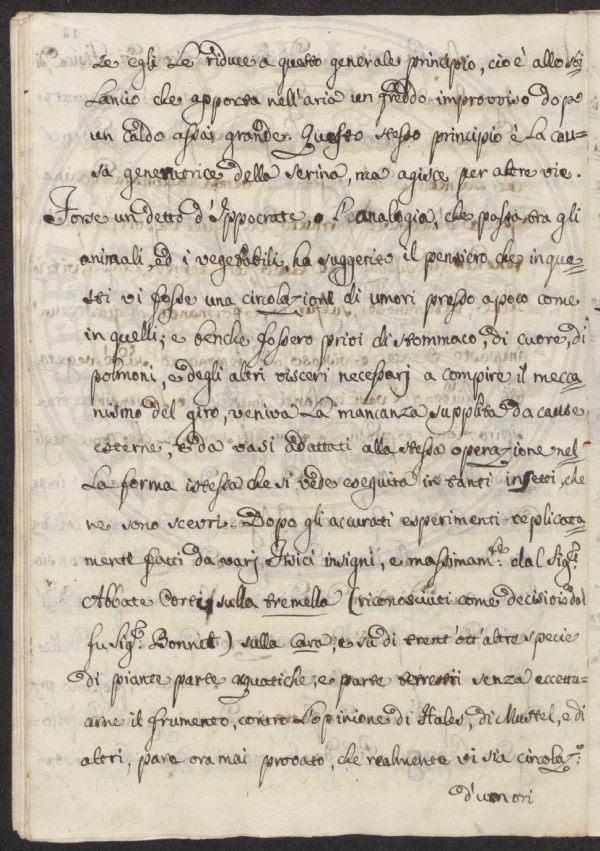 te egli le riduce a questo generale principio, cioè allo sbi=
lancio che apporta nell'aria un freddo improvviso dopo
un caldo assai grande. Questo stesso principio è la cau=
sa generatrice della serina, ma agisce per altre vie.
Forse un detto d'Ippocrate, o l'analogia, che passa tra gli
animali, ed i vegetabili, ha suggerito il pensiero che in que=
sti vi fosse una circolazione di umori presso a poco come
in quelli; e benche fossero privi di stommaco, di cuore, di
polmoni, e degli altri visceri necessarj a compire il mecca=
nismo del giro, veniva la mancanza supplita da cause
esterne, e da vasi adattati alla stessa operazione nel=
la forma istessa che si vede eseguita in tanti insetti, che
ne sono scevri. Dopo gli accurati esperimenti replicata=
mente fatti da varj Fisici insigni, e massimam.te dal Sig.r
Abbate Corti sulla tremella (riconosciuti come decisivi dal
fu Sig.r Bonnet) sulla cara, e su di trent'ott'altre specie
di piante parte aquatiche, e parte terrestri senza eccettu=
arne il frumento, contro l'opinione di Hales, di Mustel, e di
altri, pare ora mai provato, che realmente vi sia circolaz.e
d'umori